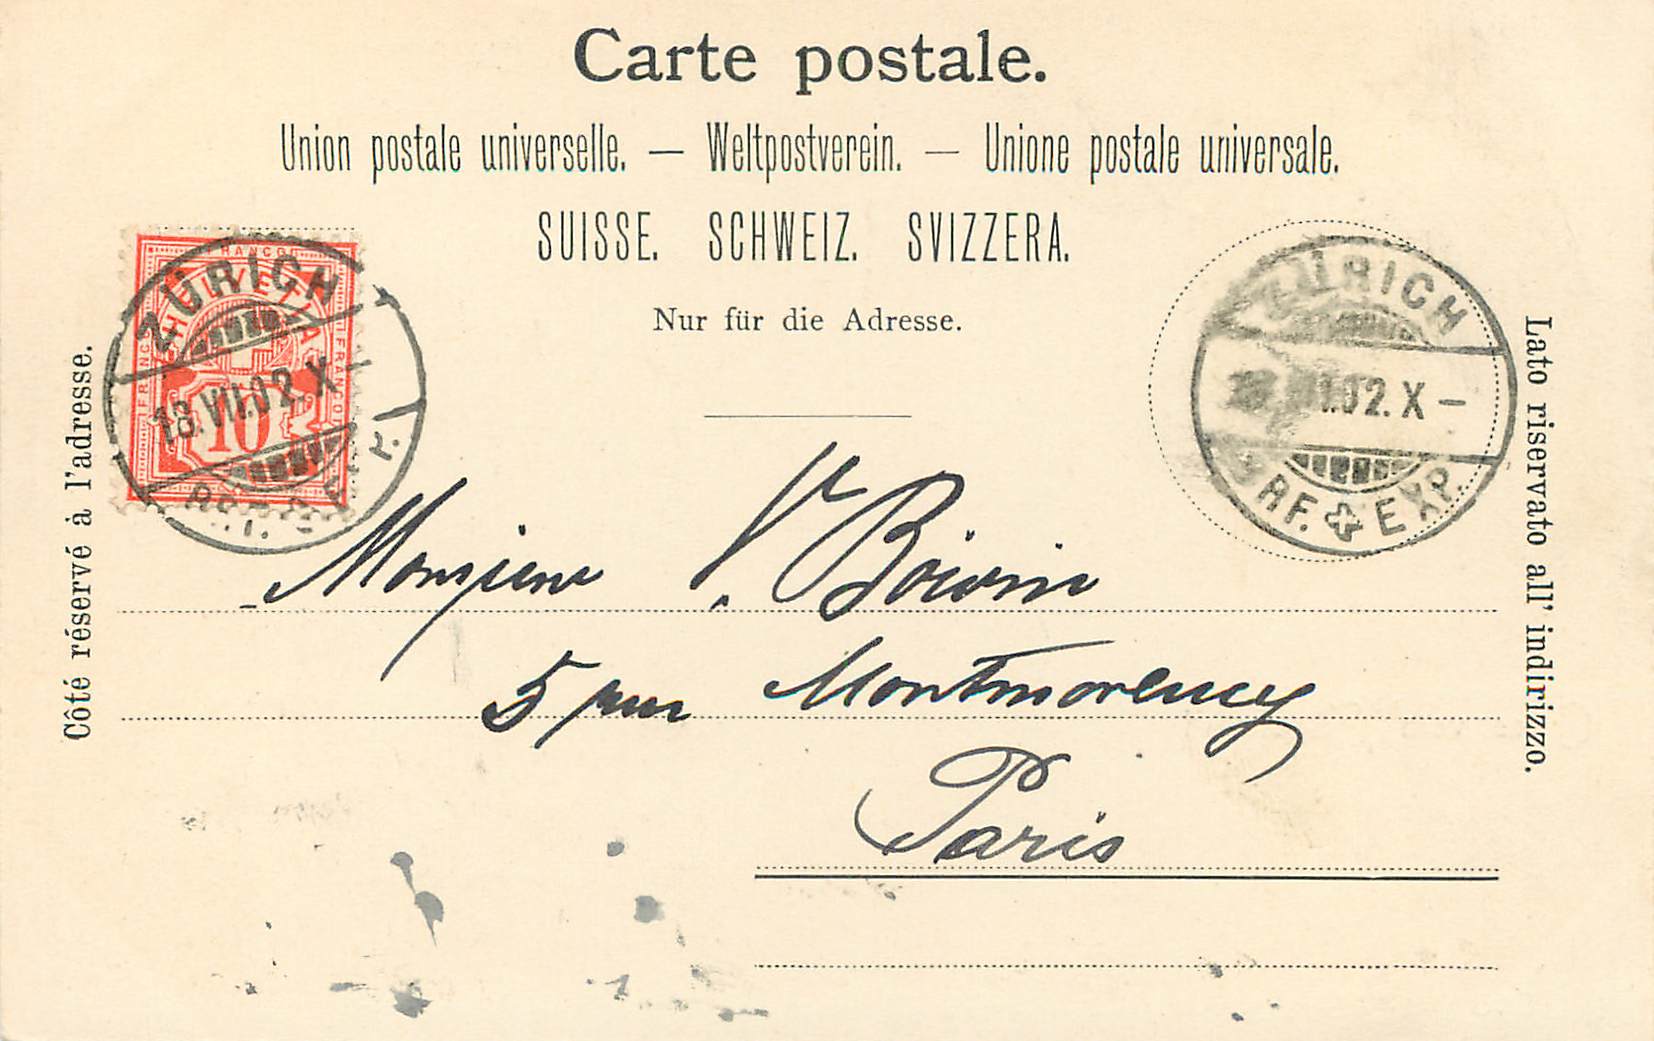 Carte postale.
Union postale universelle. — Weltpostverein. — Unione postale universale.
SUISSE. SCHWEIZ. SVIZZERA.
Nur für die Adresse.
Côté réservé à l'adresse.
Lato riservato all' indirizzo.
FRANCO
HELVETIA
FRANCO
10
ZÜRICH
18.VII.02.X
ZÜRICH
VII.02.X –
BRF. EXP.
Monsieur V. Boivin
5 rue Montmorency
Paris